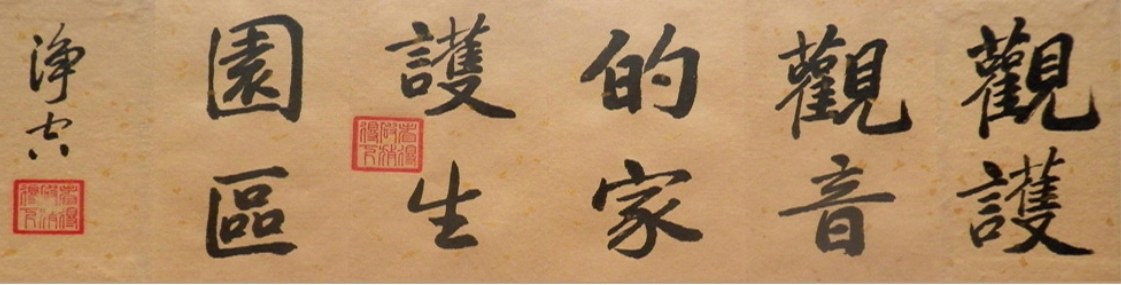 觀護
觀音
的家
護生
園區
淨空